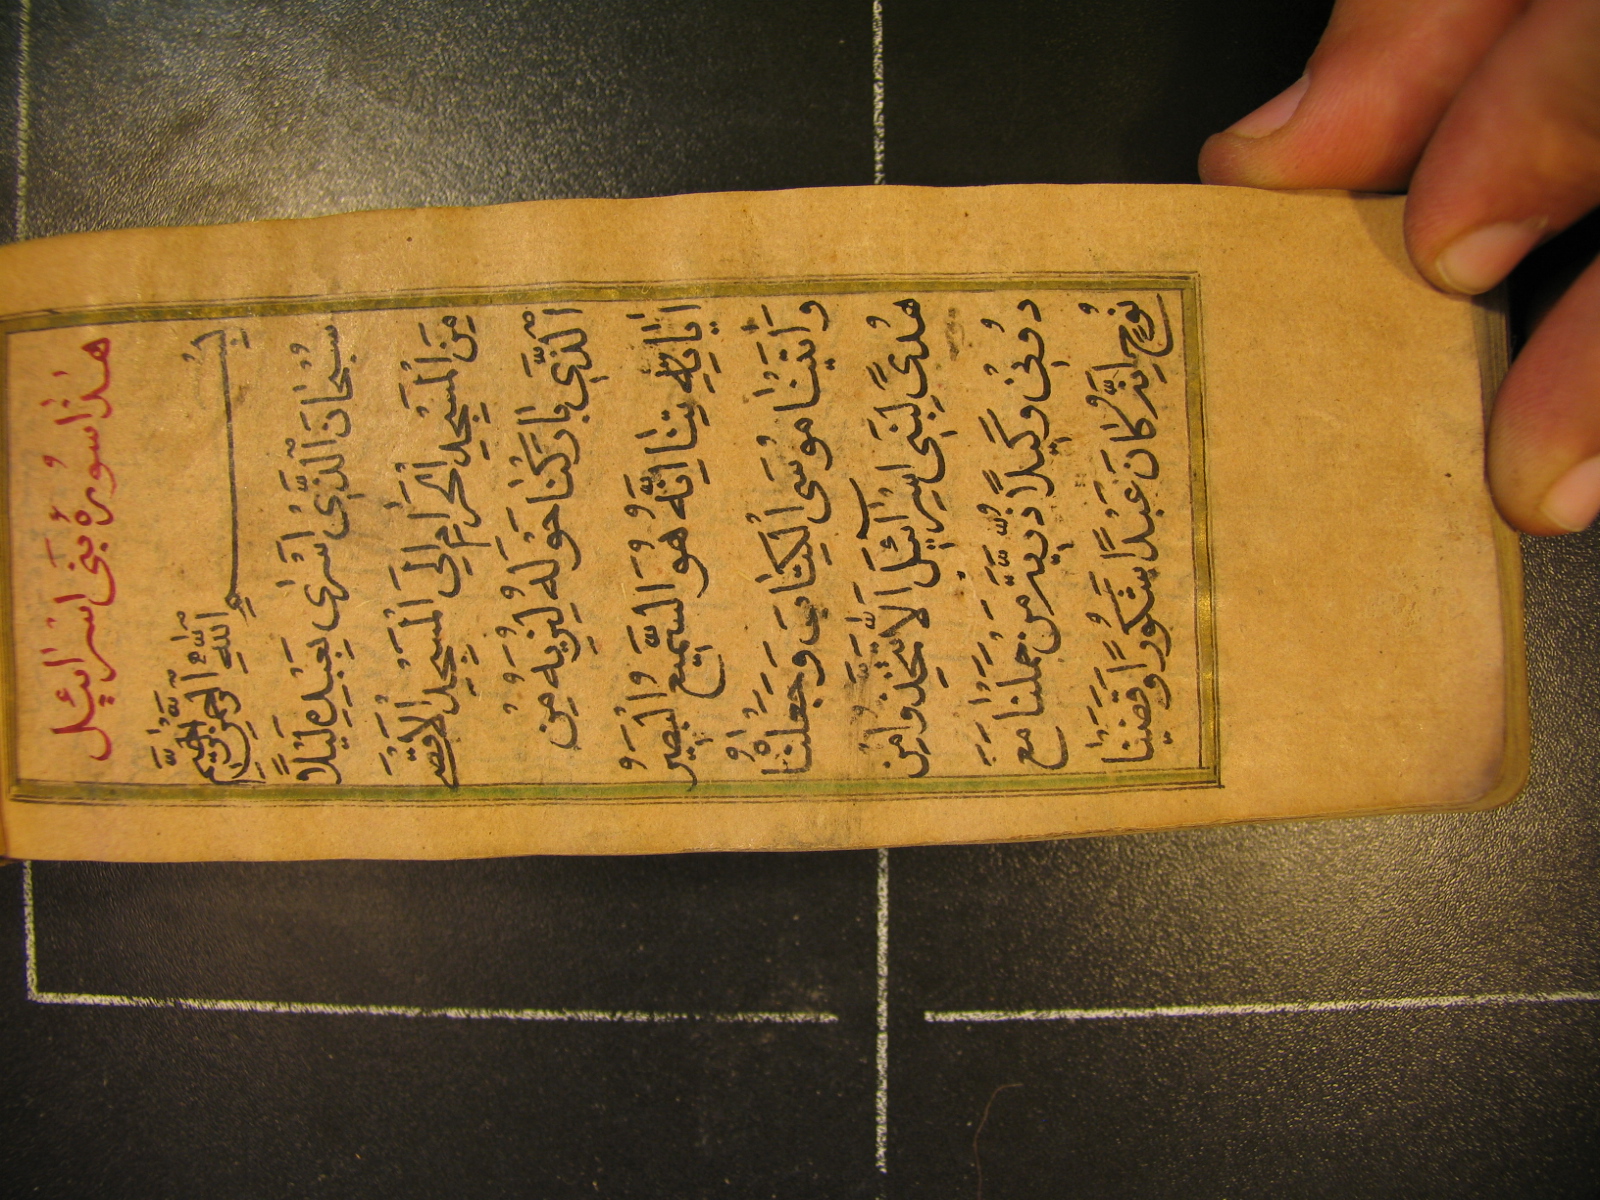 هٰذا سوره بَنى اسرائيل
بِسْمِ
اللّٰهِ الرَّحْمٰنِ الرَّحِيْمِ
سُبْحَانَ الَّذِىْ اَسْرٰى بِعَبْدِهٖ لَيْلًا
مِنَ الْمَسْجِدِ الْحَرَامِ اِلَى الْمَسْجِدِ الْاَقْصَى
الَّذِىْ بَارَكْنَا حَوْلَهُ لِنُرِيَهُ مِنْ
اٰيَاتِنَا اِنَّهُ هُوَ السَّمِيْعُ الْبَصِيْرُ
وَاٰتَيْنَا مُوْسَى الْكِتَابَ وَجَعَلْنَاهُ
هُدًى لِبَنِىْ اِسْرَآئِيْلَ اَلَّا تَتَّخِذُوْا مِنْ
دُوْنِىْ وَكِيْلًا ذُرِّيَّةَ مَنْ حَمَلْنَا مَعَ
نُوْحٍ اِنَّهُ كَانَ عَبْدًا شَكُوْرًا وَقَضَيْنَا